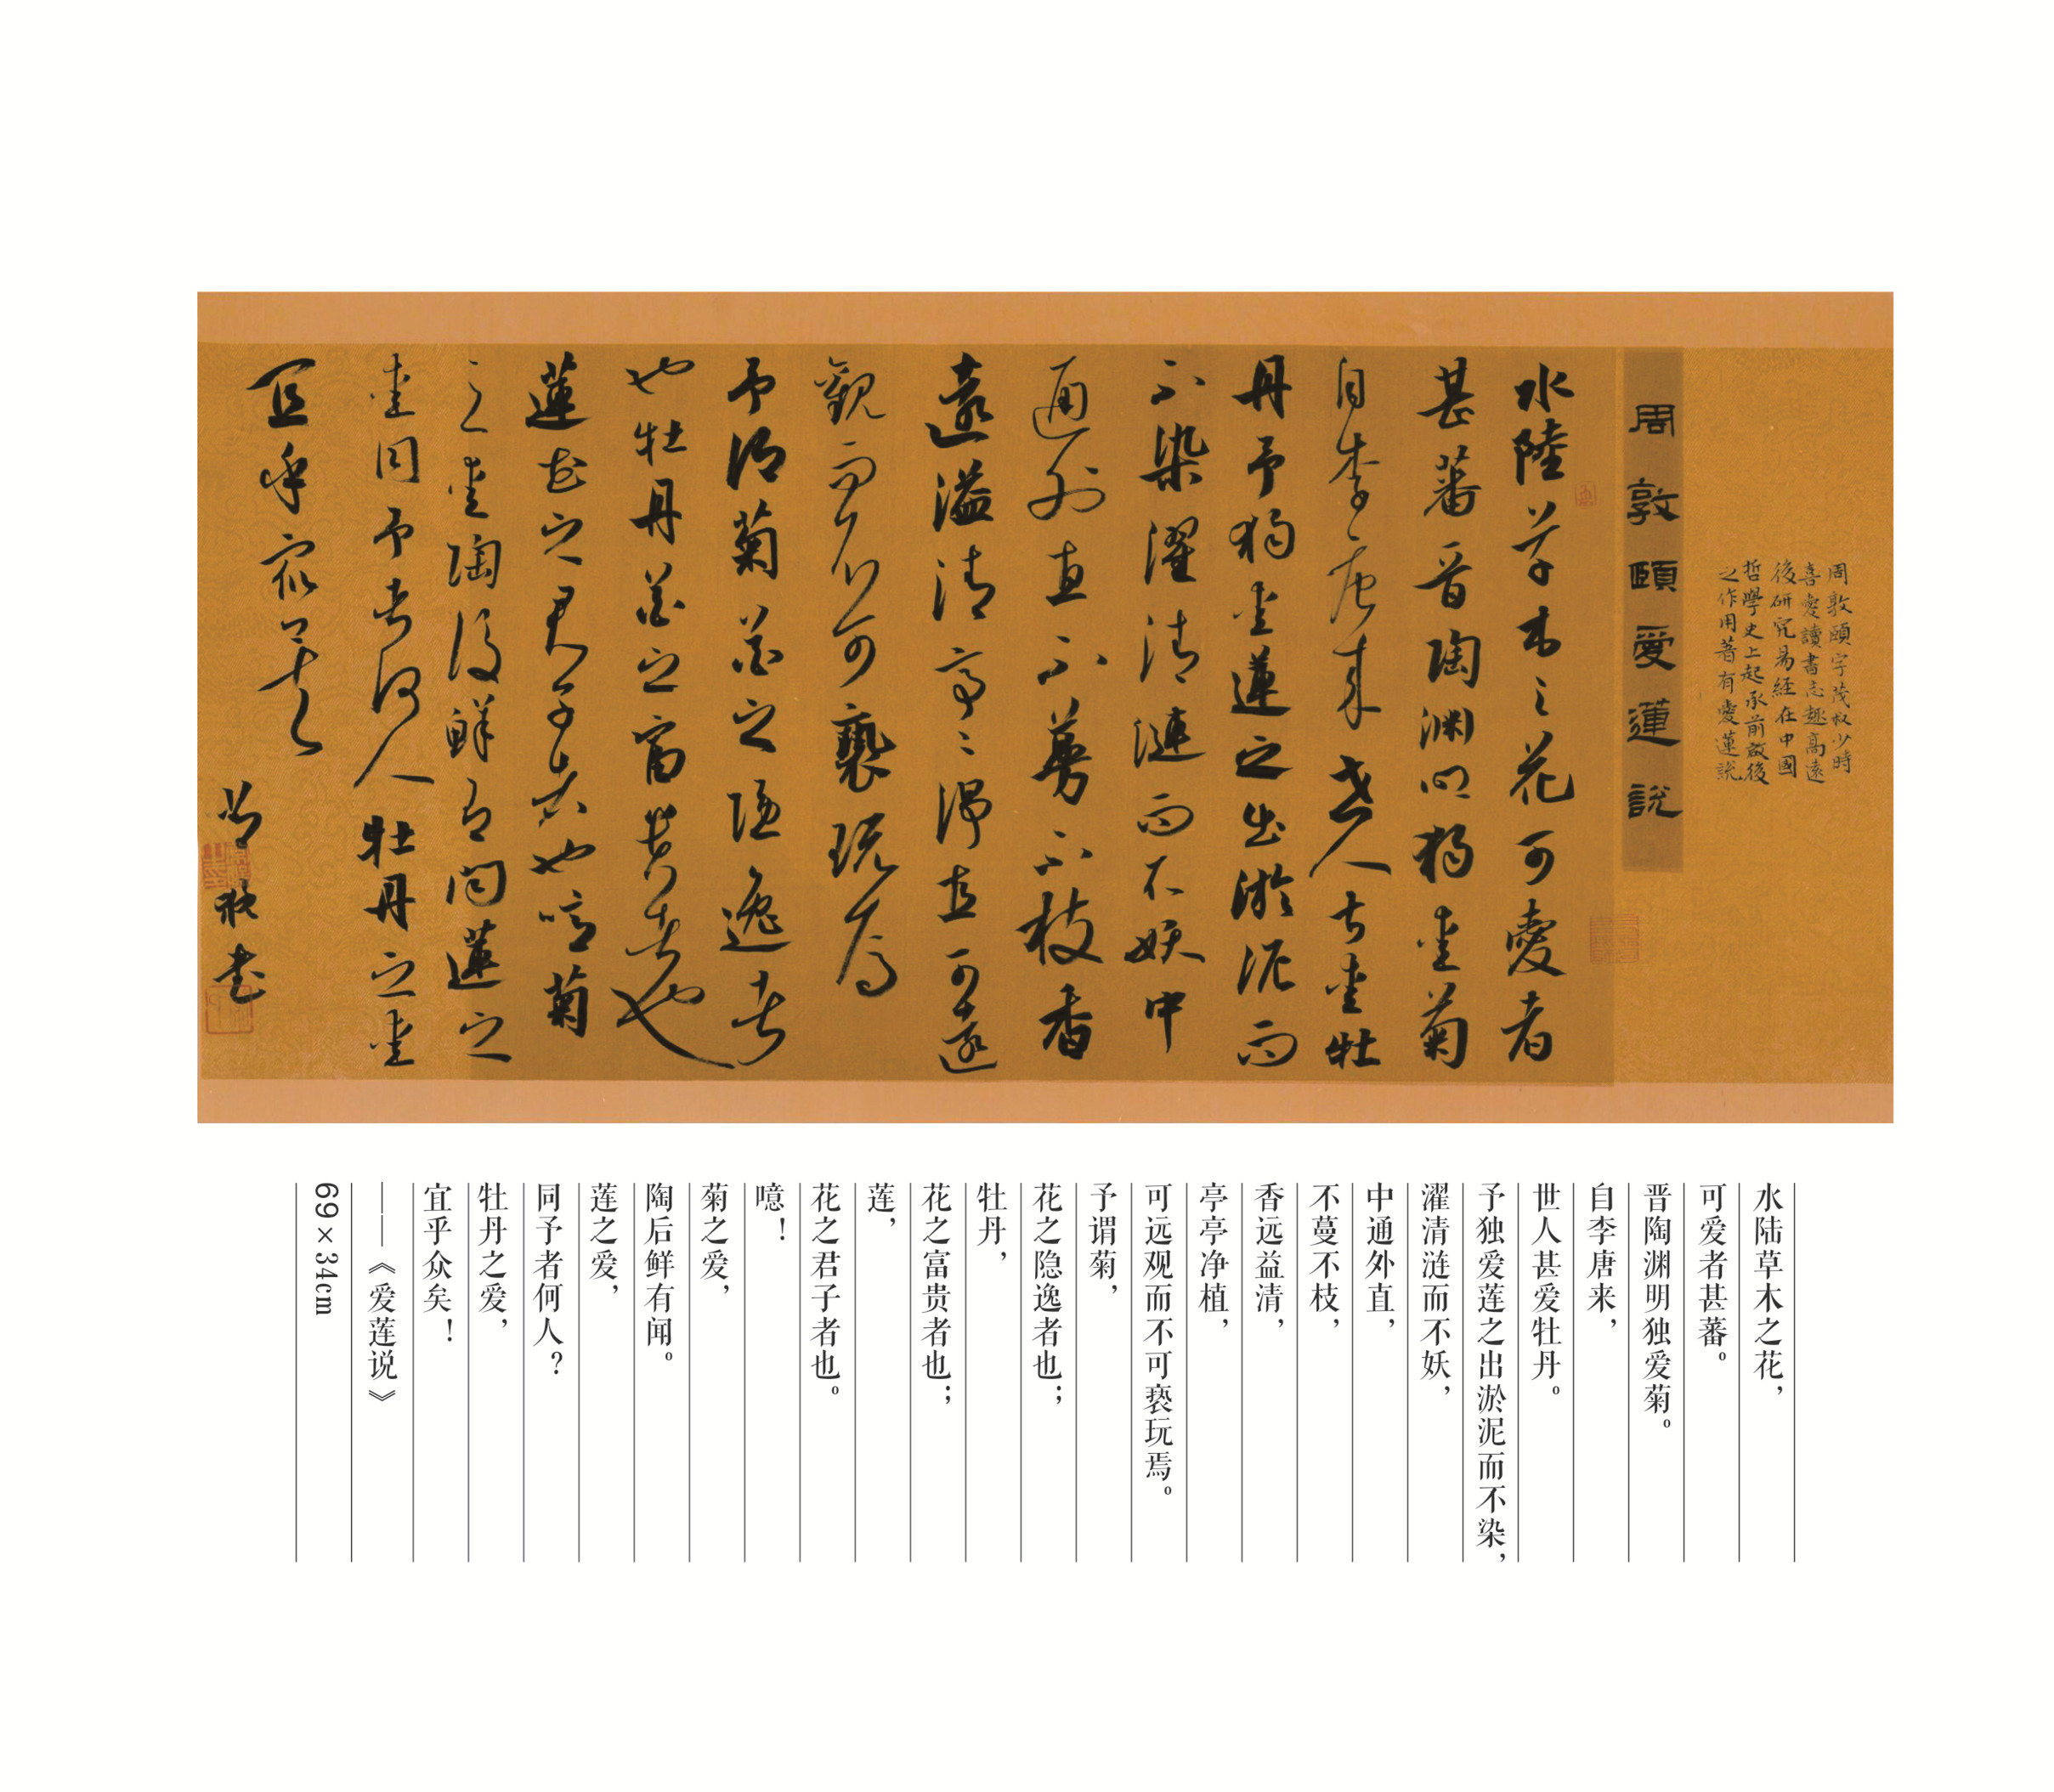 周敦頤字茂叔少時
喜愛讀書志趣高遠
後研究易經在中國
哲學史上起承前啟後
之作用著有愛蓮說
周敦頤愛蓮說
水陸草木之花可愛者
甚蕃晉陶渊明独愛菊
自李唐来世人甚愛牡
丹予独愛蓮之出淤泥而
不染濯清漣而不妖中
通外直不蔓不枝香
遠溢清亭亭淨直可遠
觀而不可褻玩焉
予谓菊花之隱逸者
也牡丹花之富貴者也
蓮花之君子者也噫菊
之愛陶後鮮有闻蓮之
愛同予者何人牡丹之愛
宜乎眾矣
书
水陆草木之花，
可爱者甚蕃。
晋陶渊明独爱菊。
自李唐来，
世人甚爱牡丹。
予独爱莲之出淤泥而不染，
濯清涟而不妖，
中通外直，
不蔓不枝，
香远益清，
亭亭净植，
可远观而不可亵玩焉。
予谓菊，
花之隐逸者也；
牡丹，
花之富贵者也；
莲，
花之君子者也。
噫！
菊之爱，
陶后鲜有闻。
莲之爱，
同予者何人？
牡丹之爱，
宜乎众矣！
——《爱莲说》
69×34cm